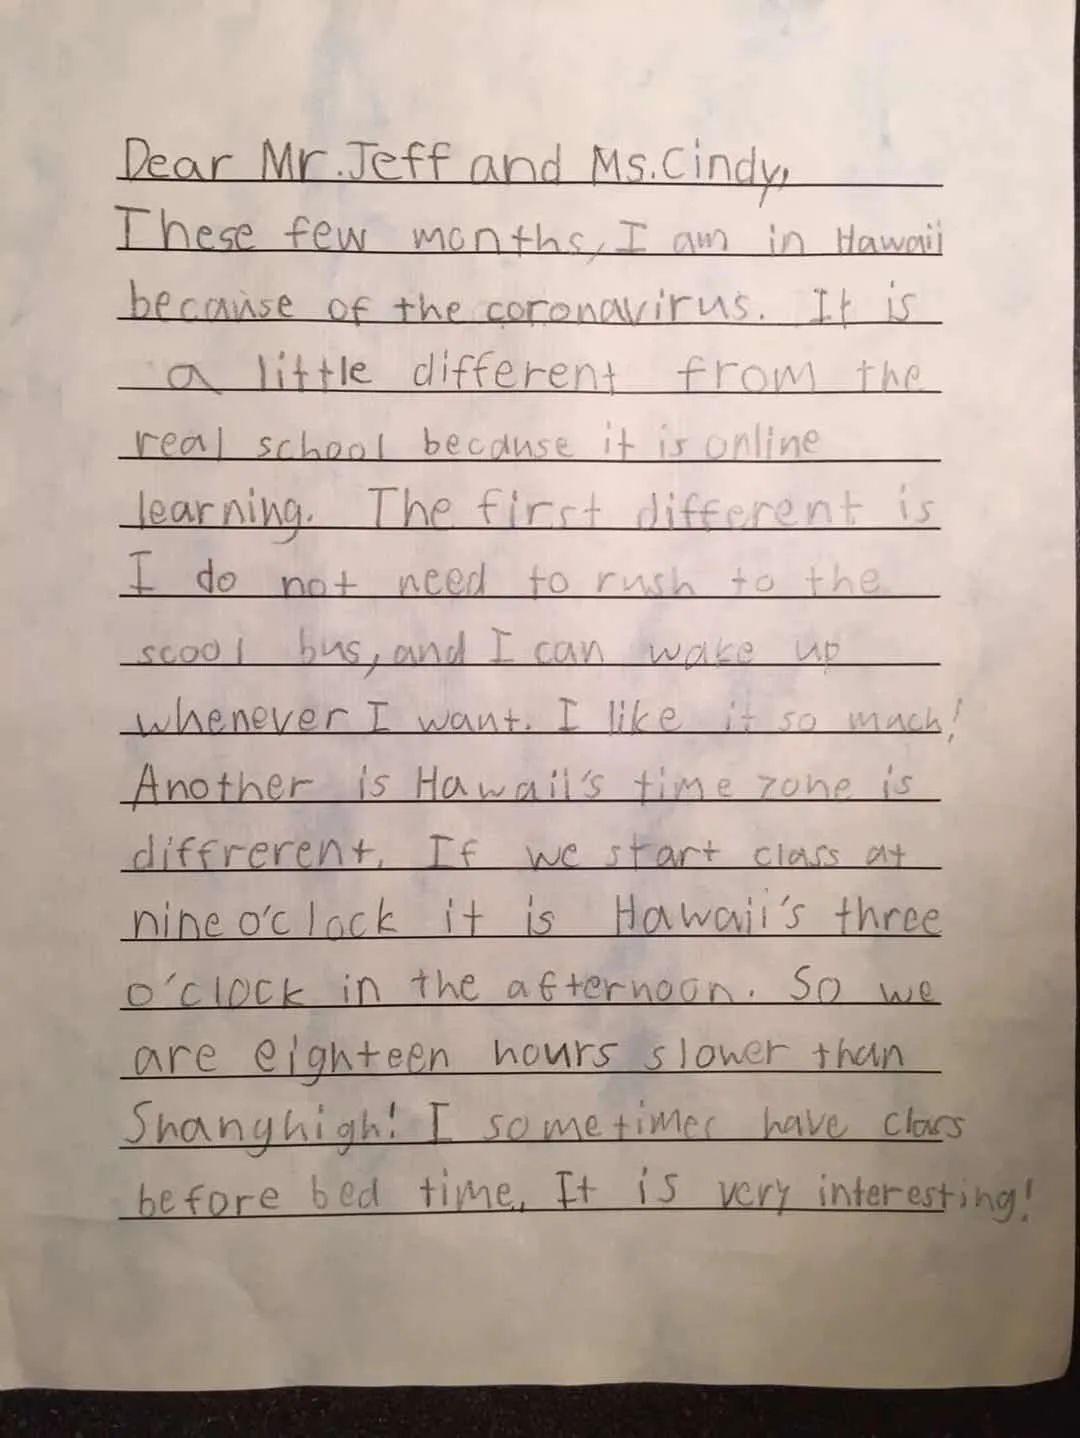 Dear Mr. Jeff and Ms. Cindy,
These few months, I am in Hawaii
because of the coronavirus. It is
a little different from the
real school because it is online
learning. The first different is
I do not need to rush to the
scool bus, and I can wake up
whenever I want. I like it so much!
Another is Hawaii's time zone is
diffrerent. If we start class at
nine o'clock it is Hawaii's three
o'clock in the afternoon. So we
are eighteen hours slower than
Shanghigh! I sometimes have class
before bed time. It is very interesting!